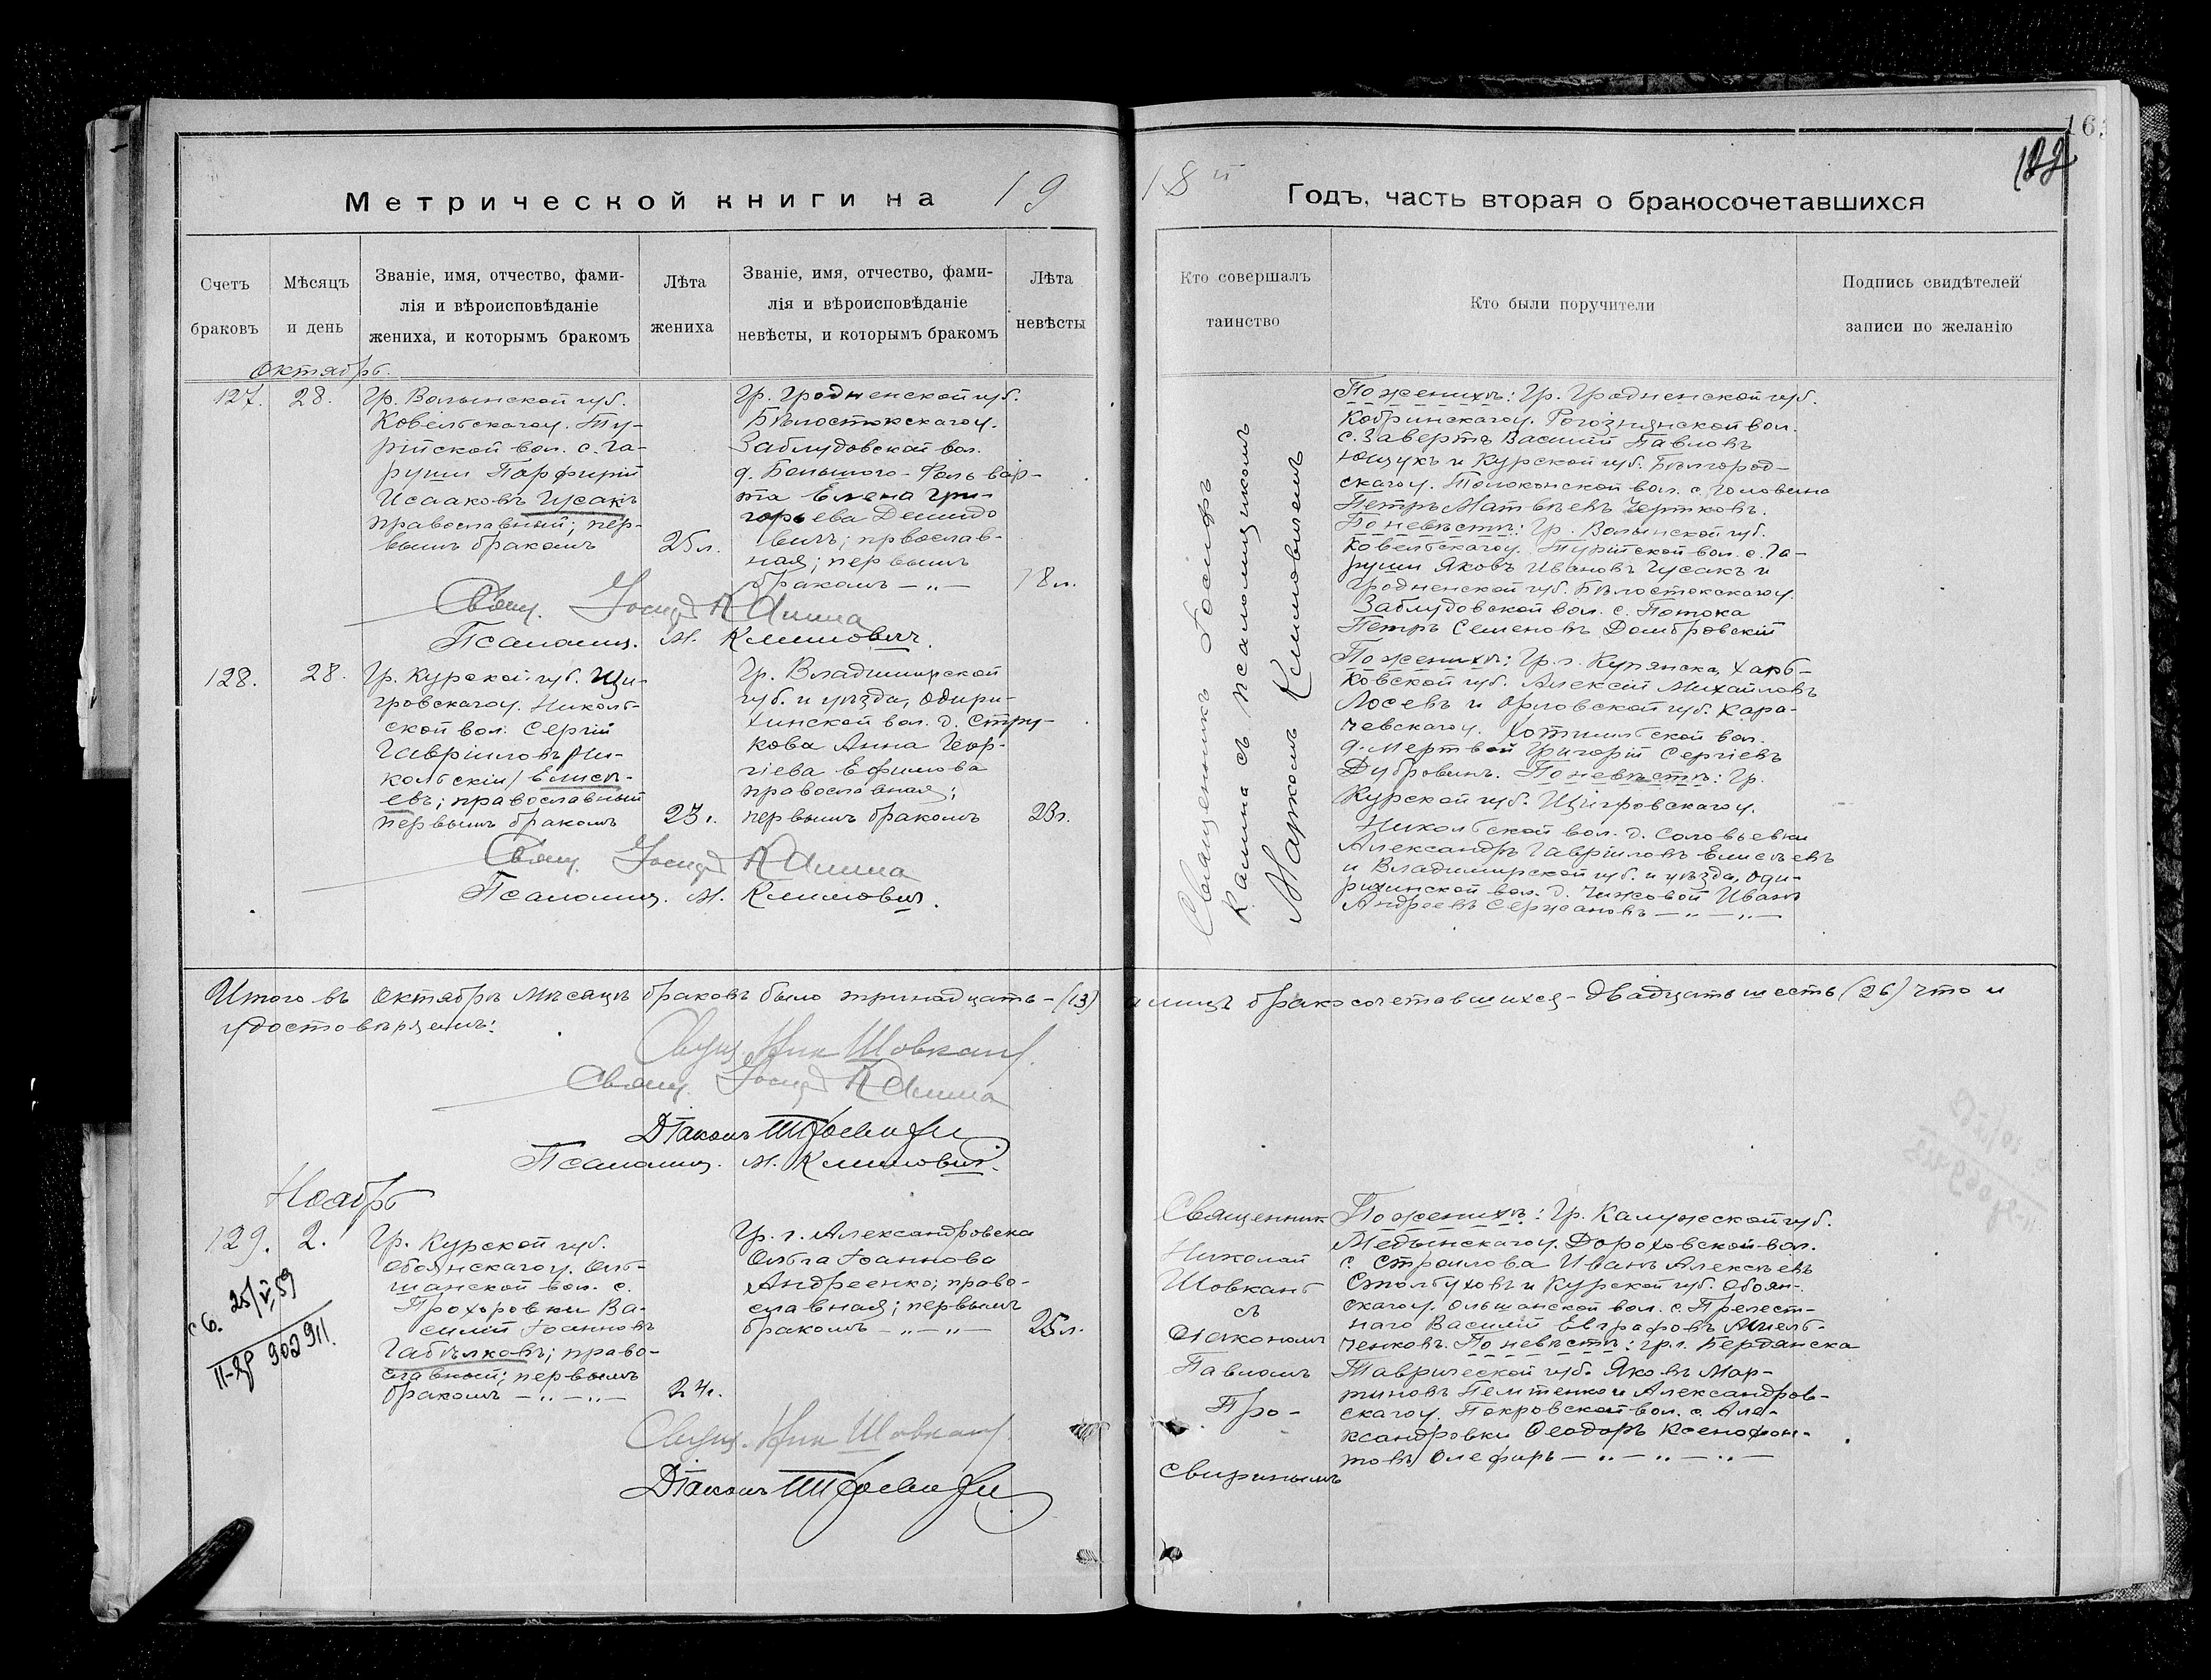 16
Метрической книги на 19
18 й Годъ, часть вторая о бракосочетавшихся
Счетъ
браковъ
Мѣсяцъ
и день
Званіе, имя, отчество, фами-
лія и вѣроисповѣданіе
жениха, и которымъ бракомъ
Лѣта
жениха
Званіе, имя, отчество, фами-
лія и вѣроисповѣданіе
невѣсты, и которымъ бракомъ
Лѣта
невѣсты
Кто совершалъ
таинство
Кто были поручители
Подпись свидѣтелей
записи по желанію
Октябрь.
127.
28.
Гр. Волынской губ.
Ковельскаго у. Ту-
рійской вол. с. Га-
руши Парфирій
Исааковъ Гусакъ
православный; пер-
вымъ бракомъ
25 л.
Гр. Гродненской губ.
Бѣлостокскаго у.
Заблудовской вол.
д. Большого-Фольвар-
та Елена Гри-
горьева Демидо
вичъ; првослав-
ная; первымъ
бракомъ — „ —
18 л.
Свящ. Іосифъ Калина
Псаломщ. М. Климовичъ.
Священникъ Іосифъ
Калина съ псаломщикомъ
Маркомъ Климовичемъ
По женихѣ: Гр. Гродненской губ.
Кобринскаго у. Рогознянской вол.
с. Заверть Василій Павловъ
Ющукъ и Курской губ. Бѣлгород-
скаго у. Толоконской вол. с. Головино
Петръ Матвѣевъ Чертковъ.
По невѣстѣ: Гр. Волынской губ.
Ковельскаго у. Турійской вол. с. Га-
руши Яковъ Ивановъ Гусакъ и
Гродненской губ. Бѣлостокскаго у.
Заблудовской вол. с. Потока
Петръ Семеновъ Домбровскій
128.
28.
Гр. Курской губ. Щи-
гровскаго у. Николь-
ской вол. Сергій
Гавріиловъ Ни-
кольскій / Елисѣ-
евъ; православный
первымъ бракомъ
23 г.
Гр. Владимирской
губ. и уѣзда, Одири-
хинской вол. д. Стру-
кова Анна Геор-
гіева Ефимова
православная;
первымъ бракомъ
23 г.
Свящ. Іосифъ Калина
Псаломщ. М. Климовичъ.
По женихѣ: Гр. г. Купянска, Харь-
ковской губ. Алексій Михайловъ
Лосевъ и Орловской губ. Кара-
чевскаго у. Хотимльской вол.
д. Мертвой Григорій Сергіевъ
Дубровинъ. По невѣстѣ: Гр.
Курской губ. Щигровскаго у.
Никольской вол. д. Соловьевки
Александръ Гавріиловъ Елисѣевъ
и Владимирской губ. и уѣзда, Оди-
рихинской вол. д. Чижовой Иванъ
Андреевъ Сержановъ — „ — „ —
Итого въ октябрѣ мѣсяцѣ браковъ было тринадцать - (13) а лицъ бракосочетавшихся - двадцать шесть (26) что и
удостовѣряемъ:
Свящ. Ник Шовкань
Свящ. Іосифъ Калина
Діаконъ
Псаломщ. М. Климовичъ.
Ноябрь
129.
2.
Гр. Курской губ.
Обоянскаго у. Оль-
шанской вол. с.
Прохоровки Ва-
силій Іоанновъ
Габѣлковъ; право-
славный; первымъ
бракомъ — „ — „ —
24 г.
Гр. г. Александровска
Ольга Іоаннова
Андреенко; право-
славная; первымъ
бракомъ — „ — „ —
25 л.
с б. 25/V,59
902911.
Свящ. Ник Шовкань
Діаконъ
Священникъ
Николай
Шовкань
съ
діакономъ
Павломъ
Про-
свиринымъ
По женихѣ: Гр. Калужской губ.
Медынскаго у. Дороховской вол.
с. Строилова Иванъ Алексѣевъ
Столбуховъ и Курской губ. Обоян-
скаго у. Ольшанской вол. с Прелест-
наго Василій Евграфовъ Амель-
ченковъ. По невѣстѣ: гр. г. Бердянска
Таврической губ. Яковъ Мар-
тиновъ Пемтенко и Александров-
скаго у. Покровской вол. с. Але-
ксандровки Ѳеодоръ Ксенофон-
товъ Олефиръ — „ — „ — „ —